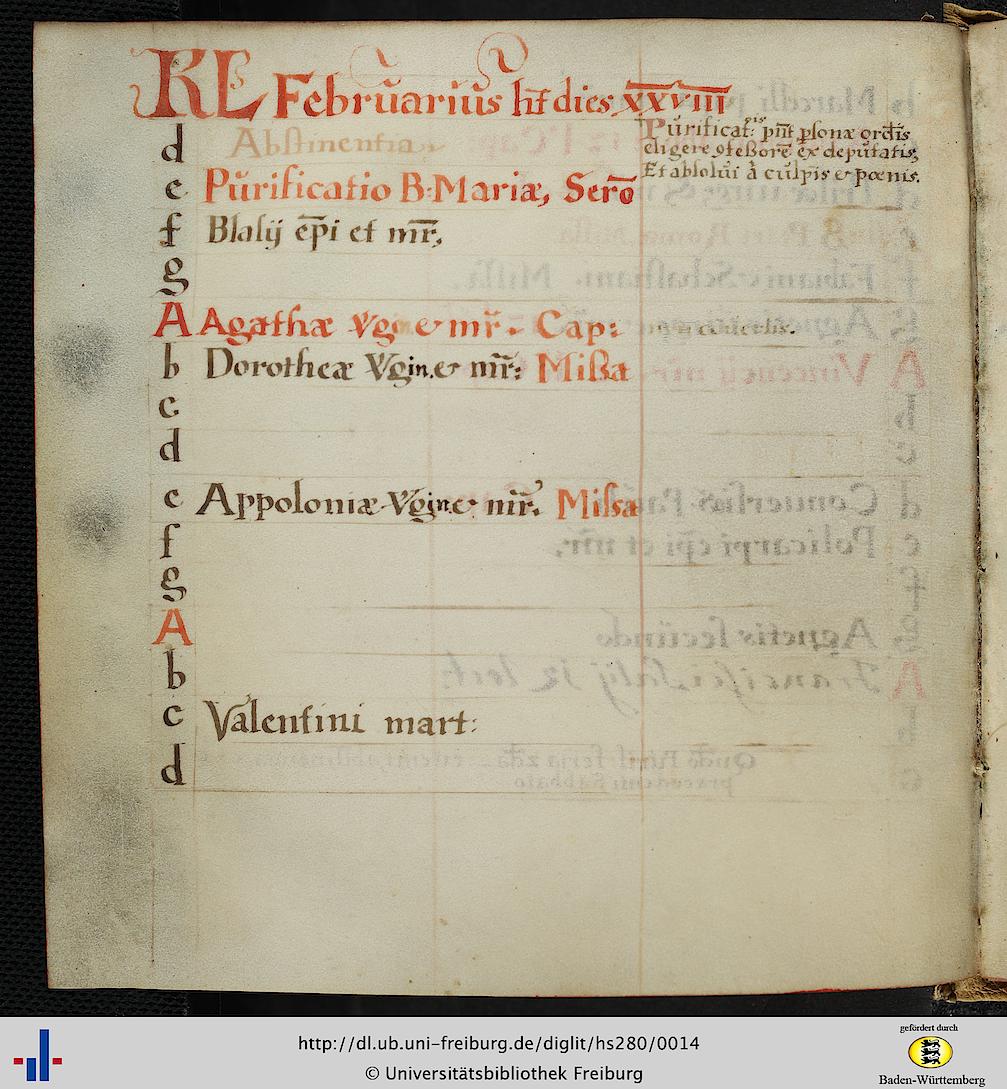 KL Februarius ht dies xxviii
Purificat: pnt psonæ ordis
eligere ofeßorē ex deputatis,
Et absolui à culpis & pœnis.
d Abstinentia.
e Purificatio B: Mariæ, Serō
f Blasij ēpi et mr̄,
g
A Agathæ Vgin & mr̄. Cap:
b Dorotheæ Vgin. & mr̄: Mißa
c
d
e Appoloniæ Vgin. & mr̄. Missa
f
g
A
b
c Valentini mart:
d
http://dl.ub.uni-freiburg.de/diglit/hs280/0014
© Universitätsbibliothek Freiburg
gefördert durch
Baden-Württemberg